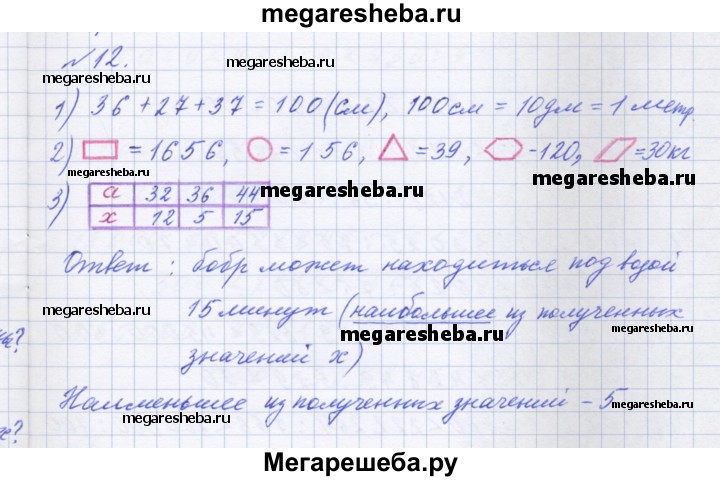 megaresheba.ru
№12.
megaresheba.ru
megaresheba.ru
megaresheba.ru
1) 36 + 27 + 37 = 100 (см), 100 см = 10 дм = 1 метр
2) = 1656, = 156, = 39, - 120, = 30 кг
megaresheba.ru
megaresheba.ru
3) a 32 36 44
x 12 5 15
Ответ: бобр может находиться под водой
15 минут (наибольшее из полученных
megaresheba.ru
megaresheba.ru
значений x)
Наименьшее из полученных значений - 5
megaresheba.ru
megaresheba.ru
Мегарешеба.ру